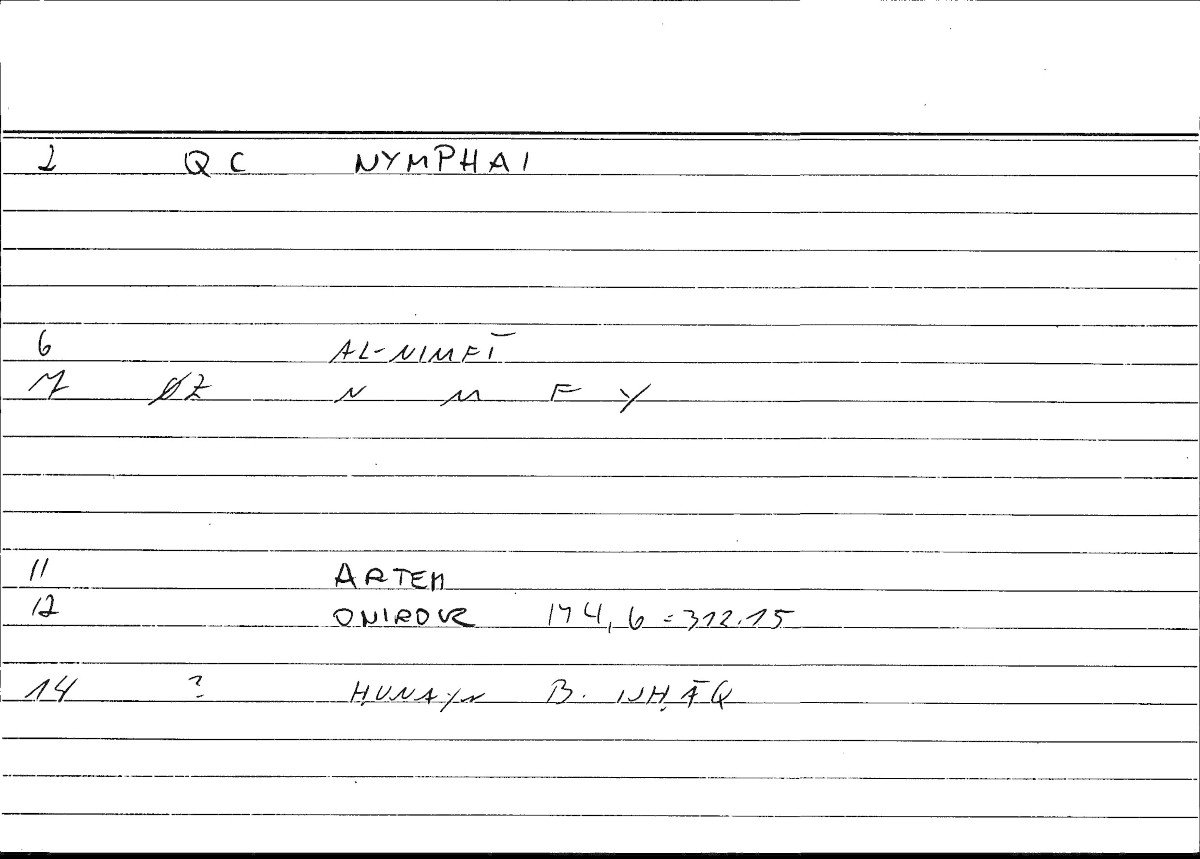 2 QC NYMPHAI
6 AL-NIMFĪ
7 ØZ N M F Y
11 ARTEM
12 ONIROCR 174,6 = 312.15
14 ? ḤUNAYN B. ISḤĀQ